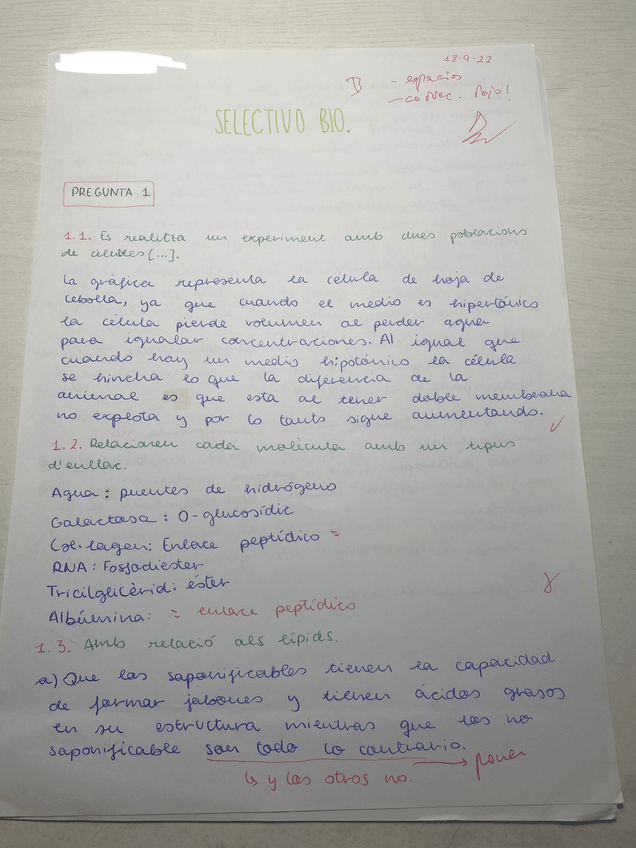 18-9-22
B - espacios
- correc. Rojo!
SELECTIVO BIO.
PREGUNTA 1
1.1. Es realitza un experiment amb dues poblacions
de cèl·lules [...].
La gráfica representa la célula de hoja de
cebolla, ya que cuando el medio es hipertónico
la célula pierde volumen al perder agua
para igualar concentraciones. Al igual que
cuando hay un medio hipotónico la célula
se hincha lo que la diferencia de la
animal es que esta al tener doble membrana
no explota y por lo tanto sigue aumentando.
1.2. Relacionen cada molècula amb un tipus
d'enllaç.
Agua: puentes de hidrógeno
Galactosa: O-glucosídic
Col·lagen: Enlace peptídico =
RNA: Fosfodiester
Tricilglicèrid: éster
Albúmina: = enlace peptídico
1.3. Amb relació als lípids.
a) Que las saponificables tienen la capacidad
de formar jabones y tienen ácidos grasos
en su estructura mientras que las no
saponificable son todo lo contrario.
↳ y los otros no. → poner